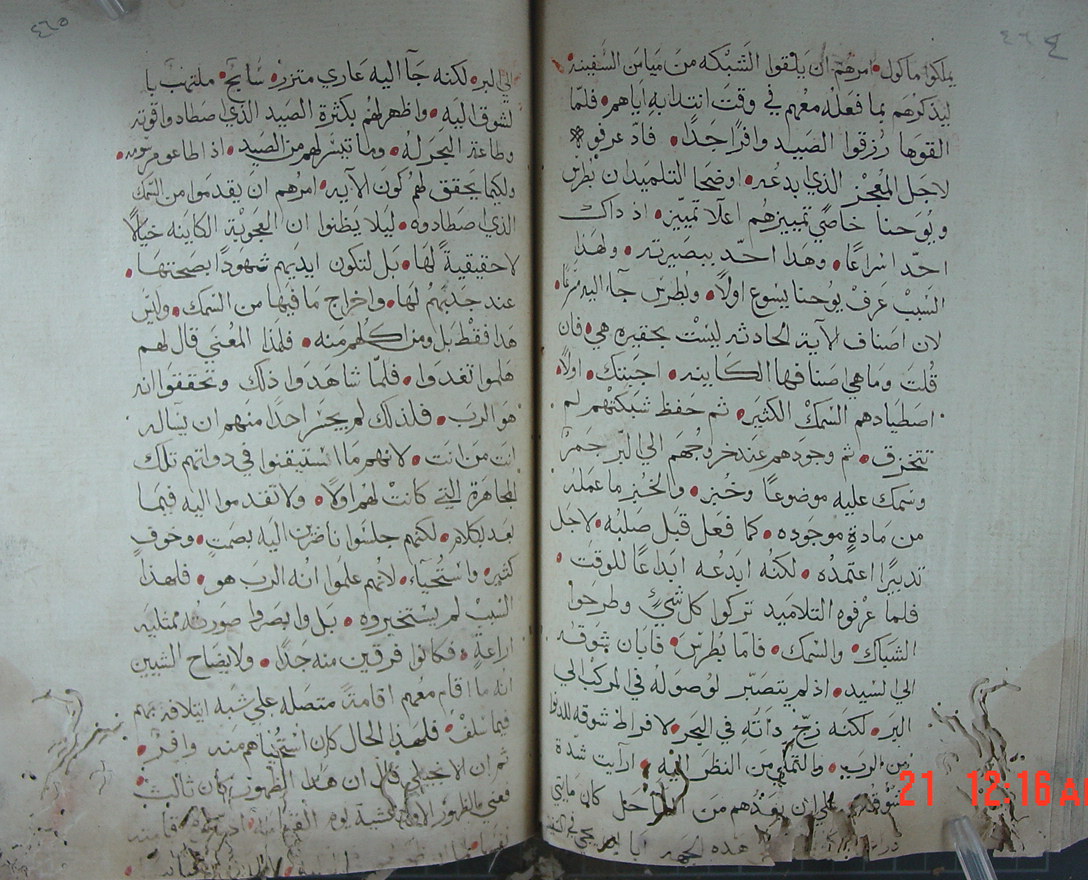 ٤٦٤
يملكوا ماكول امرهم ان يلقوا الشبكه من ميامن السفينه
ليذكرهم بما فعله معهم في وقت انتدابه اياهم فلما
القوها رزقوا الصيد وافرًا جدًا فاذ عرفو
لاجل المعجز الذي ابدعه اوضحا التلميدان بطرس
ويوحنا خاصتي تمييزهم اعلا تمييز اذ داك
احد اسراعًا وهذا احد ببصيرته ولهذا
السبب عرف يوحنا يسوع اولًا وبطرس جآ اليه مسرعًا
لان اصناف لاية لحادثه ليست بحقيره هي فان
قلت وما هي اصنافها الكاينه اجبتك اولًا
اصطيادهم السمك الكثير ثم حفظ شبكتهم لم
تتخرق ثم وجودهم عند خروجهم الي البر جمرًا
وسمك عليه موضوعًا وخبز والخبز ما عمله
من مادةٍ موجوده كما فعل قبل صلبه لاجل
تدبيرًا اعتمده لكنه ابدعه ابداعًا للوقت
فلما عرفوه التلاميد تركوا كل شيٍ وطرحوا
الشباك والسمك فاما بطرس فابان شوقه
الي السيد اذ لم يتصبر لوصوله في المركب الي
البر لكنه زج داته في البحر لافراط شوقه للدنوا
من الرب والتملي من النظر اليه ارايت شدة
شوقه علي ان بعدهم من الساحل كان مايتي
هذه
٤٦٥
الي البر لكنه جآ اليه عاري متزر سابح ملتهب با
لشوق اليه واظهر لهم بكثرة الصيد الذي صطادوا قوته
وطاعة البحر له وما تيسر لهم من الصيد اذا اطاعو مرسومه
ولكيما يحقق لهم كون الآيه امرهم ان يقدموا من السمك
الذي صطادوه ليلا يظنوا ان العجوبة الكاينه خيالًا
لا حقيقيةً لها بل لتكون ايديهم شهودًا بصحتها
عند جذبهم لها واخراج ما فيها من السمك وليس
هدا فقط بل ومن كلهم منه فلهذا المعني قال لهم
هلموا تغدوا فلما شاهدوا ذلك وتحققوا انه
هو الرب فلذلك لم يجسر احدًا منهم ان يساله
انت من انت لانهم ما استيقنوا في دواتهم تلك
المجاهرة التي كانت لهم اولًا ولا تقدموا اليه فيما
بعد لكلام لكنهم جلسوا ناضرين اليه بصمت وخوف
كثير واستحيآء لانهم علموا انه الرب هو فلهذا
السبب لم يستخبروه بل وابصروا صورته ممثليه
اراعةٍ فكانوا فرقين منه جدًا ولايضاح الشيين
انه ما اقام معهم اقامةً متصله علي شبه ايتلافه بهم
فيما سلف فلهذا الحال كان استحياهم منه وافر
ثم ان الانجيلي قال ان هذا الظهور كان ثالث
فعني بالظهور الاول عشية يوم